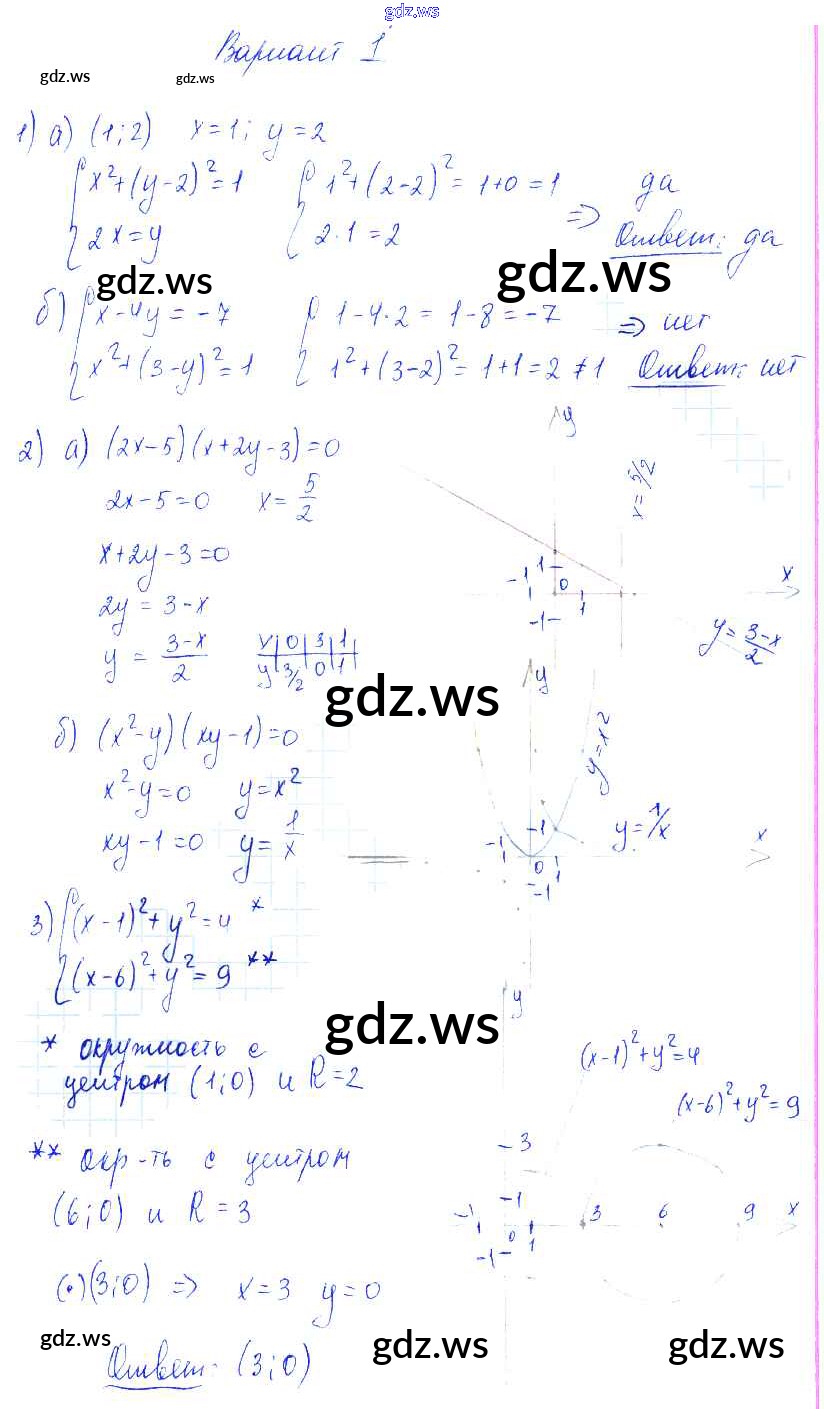 gdz.ws
Вариант 1
gdz.ws gdz.ws
1) а) (1;2) x=1; y=2
{ x²+(y-2)²=1 { 1²+(2-2)²= 1+0=1 да
2x=y 2·1=2 => Ответ: да
gdz.ws gdz.ws
б) { x-4y=-7 { 1-4·2=1-8=-7 => нет
x²+(3-y)²=1 1²+(3-2)²=1+1=2≠1 Ответ: нет
2) а) (2x-5)(x+2y-3)=0
2x-5=0 x=5/2
x+2y-3=0
2y=3-x
y=(3-x)/2
x 0 3 1
y 3/2 0 1
y
x=5/2
-1 1 0 x
-1 1
y=(3-x)/2
gdz.ws
б) (x²-y)(xy-1)=0
x²-y=0 y=x²
xy-1=0 y=1/x
y
y=x²
y=1/x
-1 1 x
0 1
-1
3) { (x-1)²+y²=4 *
(x-6)²+y²=9 **
gdz.ws
* окружность с
центром (1;0) и R=2
** окр-ть с центром
(6;0) и R=3
(·)(3;0) => x=3 y=0
Ответ: (3;0)
y
(x-1)²+y²=4
(x-6)²+y²=9
3
-1 1 3 6 9 x
0 1
-1
gdz.ws gdz.ws gdz.ws